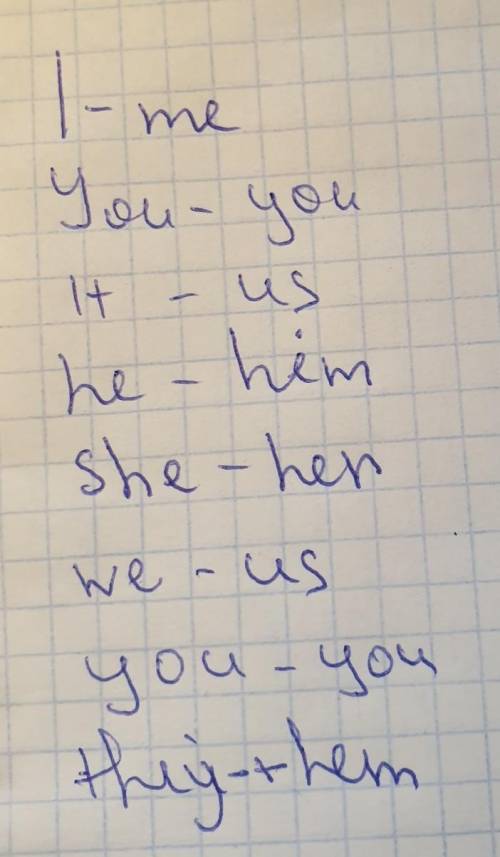 I - me
You - you
it - us
he - him
she - her
we - us
you - you
they - them